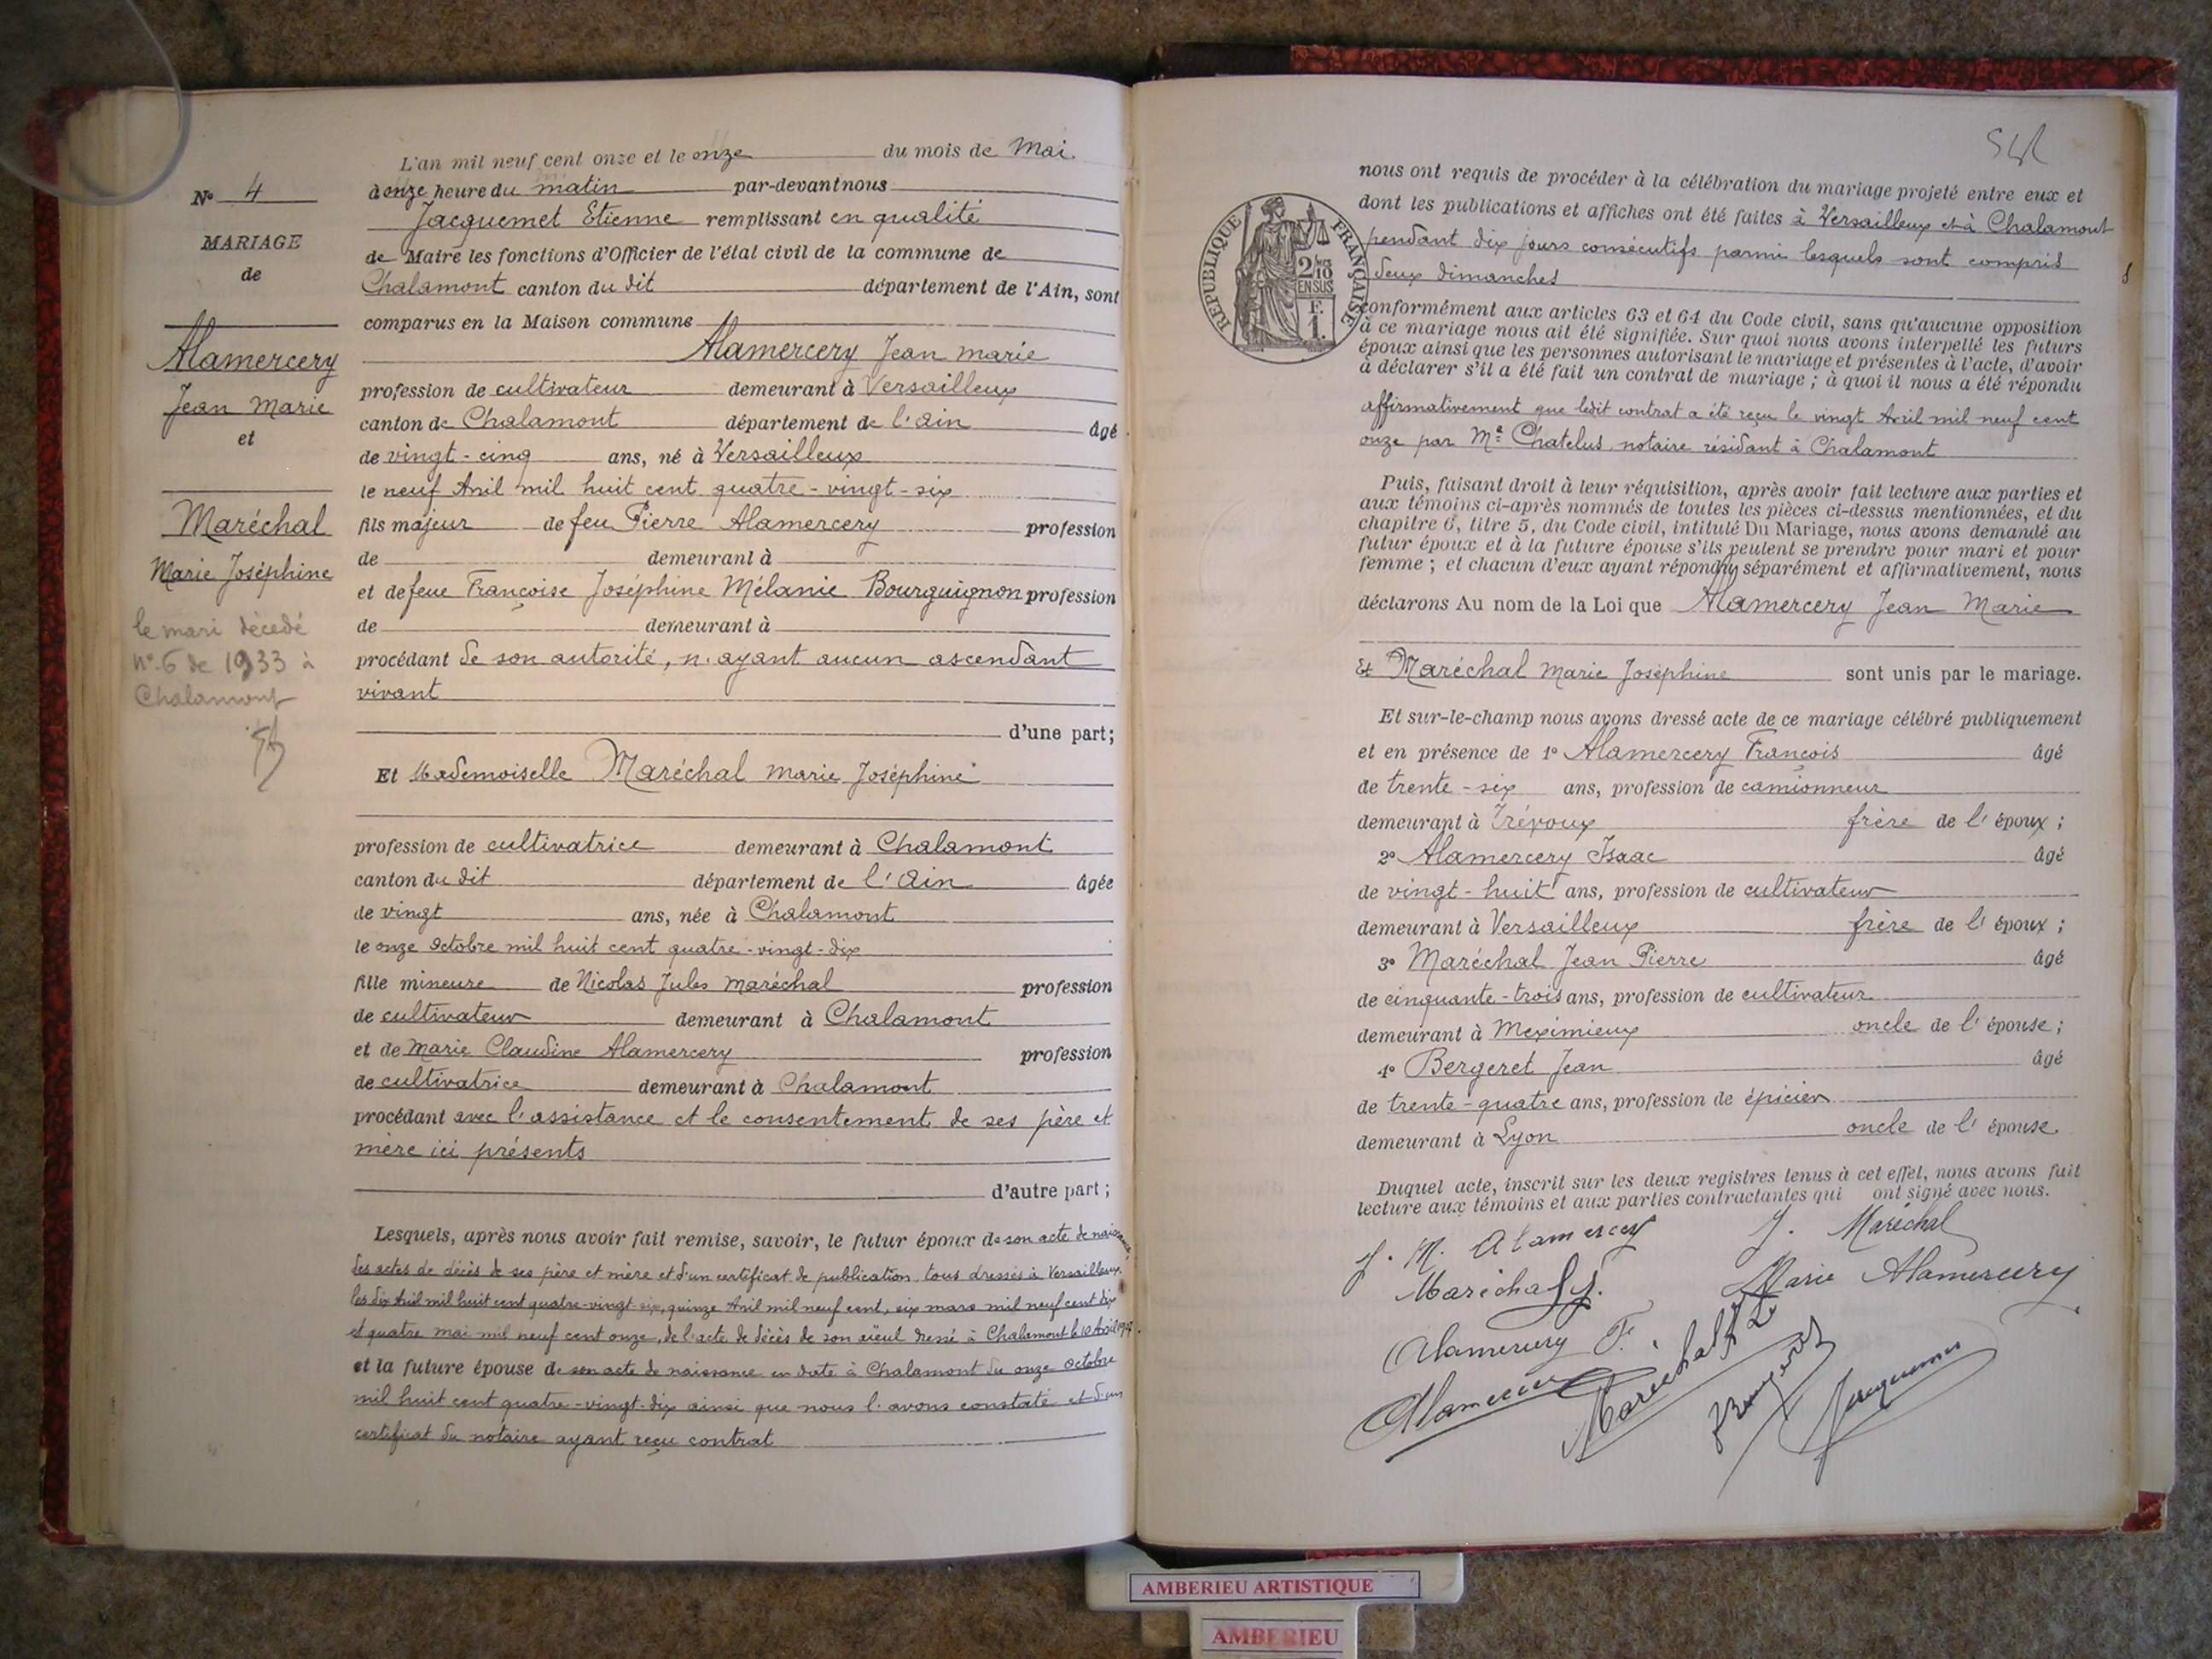 N° 4
MARIAGE
de
Alamercery
Jean Marie
et
Maréchal
Marie Joséphine
le mari décédé
n° 6 de 1933 à
Chalamont
L'an mil neuf cent onze et le onze du mois de Mai
à onze heure du matin par-devant nous
Jacquemet Etienne remplissant en qualité
de Maire les fonctions d'Officier de l'état civil de la commune de
Chalamont canton du dit département de l'Ain, sont
comparus en la Maison commune
Alamercery Jean Marie
profession de cultivateur demeurant à Versailleux
canton de Chalamont département de l'Ain âgé
de vingt-cinq ans, né à Versailleux
le neuf Avril mil huit cent quatre-vingt-six
fils majeur de feu Pierre Alamercery profession
de demeurant à
et de feue Françoise Joséphine Mélanie Bourguignon profession
de demeurant à
procédant de son autorité, n'ayant aucun ascendant
vivant
d'une part;
Et Mademoiselle Maréchal Marie Joséphine
profession de cultivatrice demeurant à Chalamont
canton du dit département de l'Ain âgée
de vingt ans, née à Chalamont
le onze Octobre mil huit cent quatre-vingt-dix
fille mineure de Nicolas Jules Maréchal profession
de cultivateur demeurant à Chalamont
et de Marie Claudine Alamercery profession
de cultivatrice demeurant à Chalamont
procédant avec l'assistance et le consentement de ses père et
mère ici présents
d'autre part;
Lesquels, après nous avoir fait remise, savoir, le futur époux de son acte de naissance,
des actes de décès de ses père et mère et d'un certificat de publication, tous dressés à Versailleux,
les dix Avril mil huit cent quatre-vingt-six, quinze Avril mil neuf cent, six mars mil neuf cent dix
et quatre mai mil neuf cent onze, de l'acte de décès de son aïeul dressé à Chalamont le 10 Avril
et la future épouse de son acte de naissance en date à Chalamont du onze Octobre
mil huit cent quatre-vingt-dix ainsi que nous l'avons constaté et d'un
certificat du notaire ayant reçu contrat
REPUBLIQUE FRANÇAISE
2/10 EN SUS
F. 1.
nous ont requis de procéder à la célébration du mariage projeté entre eux et
dont les publications et affiches ont été faites à Versailleux et à Chalamont
pendant dix jours consécutifs parmi lesquels sont compris
deux dimanches
conformément aux articles 63 et 64 du Code civil, sans qu'aucune opposition
à ce mariage nous ait été signifiée. Sur quoi nous avons interpellé les futurs
époux ainsi que les personnes autorisant le mariage et présentes à l'acte, d'avoir
à déclarer s'il a été fait un contrat de mariage ; à quoi il nous a été répondu
affirmativement que ledit contrat a été reçu le vingt Avril mil neuf cent
onze par Me Chatelus notaire résidant à Chalamont
Puis, faisant droit à leur réquisition, après avoir fait lecture aux parties et
aux témoins ci-après nommés de toutes les pièces ci-dessus mentionnées, et du
chapitre 6, titre 5, du Code civil, intitulé Du Mariage, nous avons demandé au
futur époux et à la future épouse s'ils veulent se prendre pour mari et pour
femme ; et chacun d'eux ayant répondu séparément et affirmativement, nous
déclarons Au nom de la Loi que Alamercery Jean Marie
Et Maréchal Marie Joséphine sont unis par le mariage.
Et sur-le-champ nous avons dressé acte de ce mariage célébré publiquement
et en présence de 1° Alamercery François âgé
de trente-six ans, profession de camionneur
demeurant à Trévoux frère de l'époux ;
2° Alamercery Isaac âgé
de vingt-huit ans, profession de cultivateur
demeurant à Versailleux frère de l'époux ;
3° Maréchal Jean Pierre âgé
de cinquante-trois ans, profession de cultivateur
demeurant à Meximieux oncle de l'épouse ;
4° Bergeret Jean âgé
de trente-quatre ans, profession de épicier
demeurant à Lyon oncle de l'épouse.
Duquel acte, inscrit sur les deux registres tenus à cet effet, nous avons fait
lecture aux témoins et aux parties contractantes qui ont signé avec nous.
J. M. Alamercery J. Maréchal
Maréchal J. Marie Alamercery
Alamercery F.
Alamercery Maréchal Jacquemet
AMBERIEU ARTISTIQUE
AMBERIEU